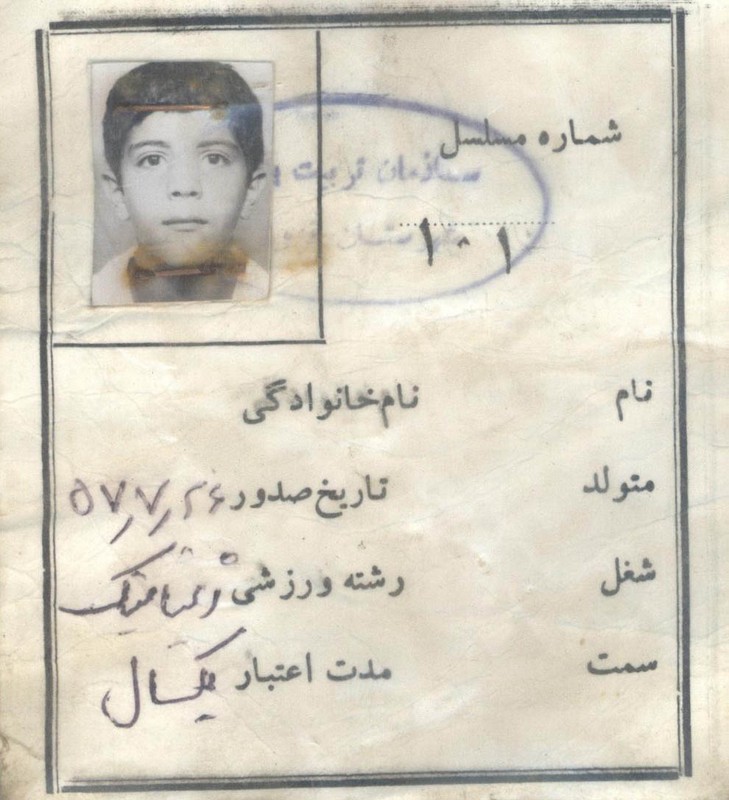 شماره مسلسل
سازمان تربیت
۱۰۱
نام
نام‌خانوادگی
متولد
تاریخ صدور ۵۷٫۷٫۲۶
شغل
رشته ورزشی ژیمناستیک
سمت
مدت اعتبار یکسال